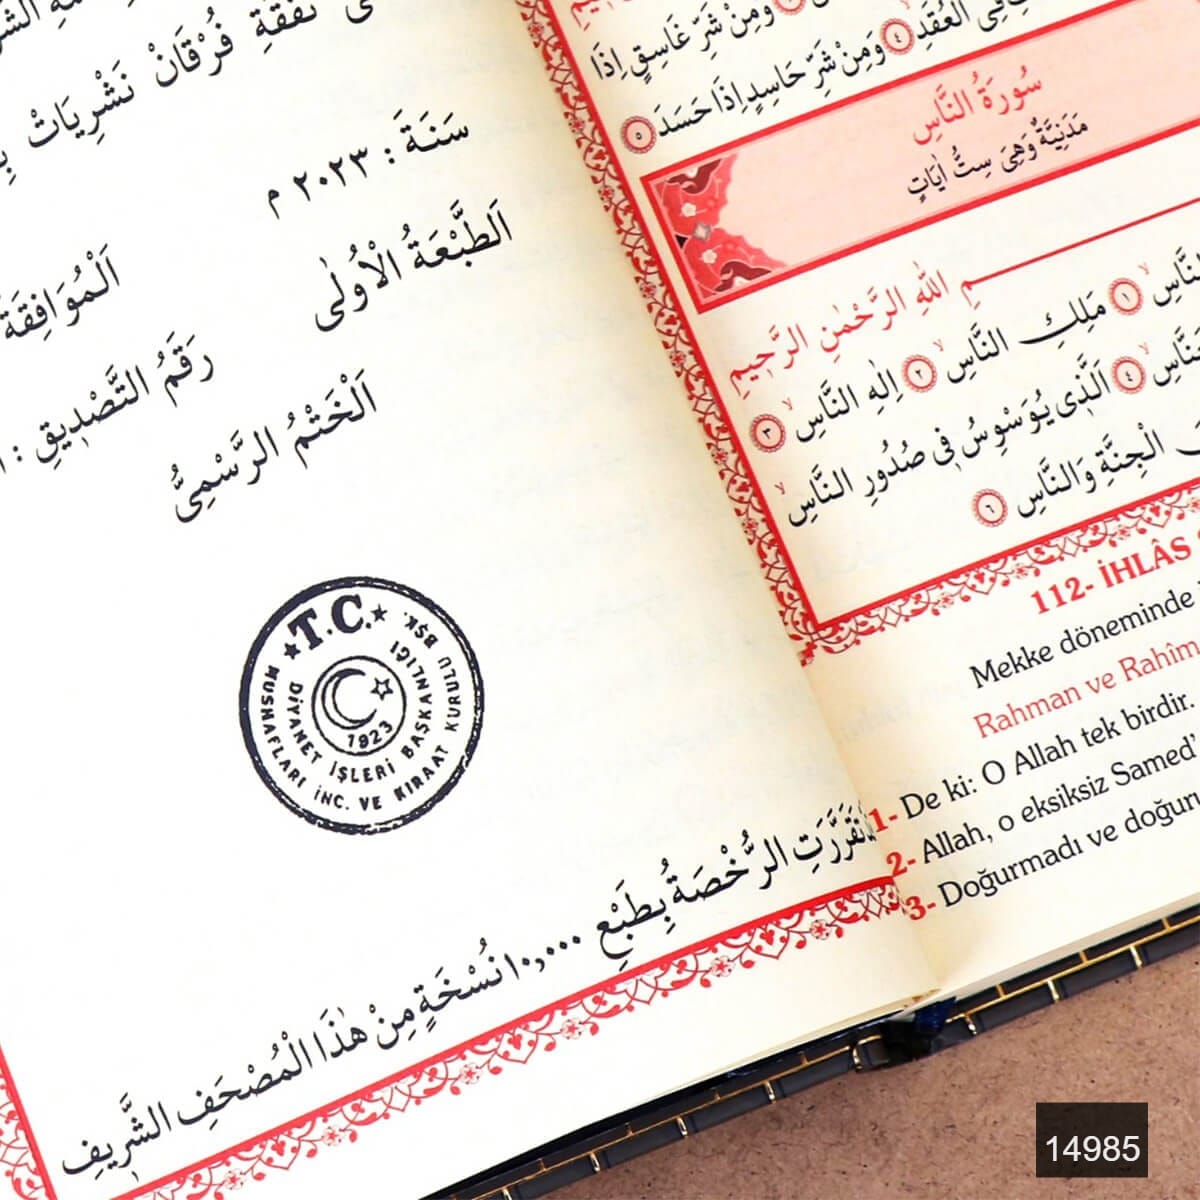 نَفَقَةِ فُرْقَانْ نَشْرِيَاتْ
سَنَةَ : ٢٠٢٣ م
اَلطَّبْعَةُ الْاُولٰى
اَلْمُوَافِقَةُ
رَقَمُ التَّصْدِيقِ :
اَلْخَتْمُ الرَّسْمِىُّ
T.C.
DİYANET İŞLERİ BAŞKANLIĞI
MUSHAFLARI İNC. VE KIRAAT KURULU BŞK.
1923
تَقَرَّرَتِ الرُّخْصَةُ بِطَبْعِ ١٠,٠٠٠ نُسْخَةٍ مِنْ هٰذَا الْمُصْحَفِ الشَّرِيفِ
وَمِنْ شَرِّ غَاسِقٍ اِذَا
فِى الْعُقَدِ ٤ وَمِنْ شَرِّ حَاسِدٍ اِذَا حَسَدَ ٥
سُورَةُ النَّاسِ
مَدَنِيَّةٌ وَهِىَ سِتُّ اٰيَاتٍ
بِسْمِ اللّٰهِ الرَّحْمٰنِ الرَّحِيمِ
النَّاسِ ١ مَلِكِ النَّاسِ ٢ اِلٰهِ النَّاسِ ٣
الْخَنَّاسِ ٤ اَلَّذٖى يُوَسْوِسُ فٖى صُدُورِ النَّاسِ
الْجِنَّةِ وَالنَّاسِ ٦
112- İHLÂS
Mekke döneminde
Rahman ve Rahîm
1- De ki: O Allah tek birdir.
2- Allah, o eksiksiz Samed'
3- Doğurmadı ve
14985